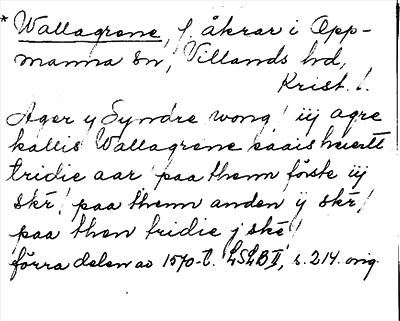 * Wallagrene, f. åkrar i Opp-
manna sn, Villands hd,
Krist. l.
Ager y Syndre wong / iij agre
kallis Wallagrene saais huertt
tridie aar / paa themm förste iij
skr / paa themm anden ij skr /
paa then tridie j skr /
förra delen av 1570-t. LSLB II, s. 214. orig.